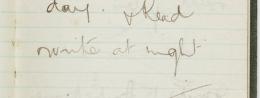 day. & Read
write at night